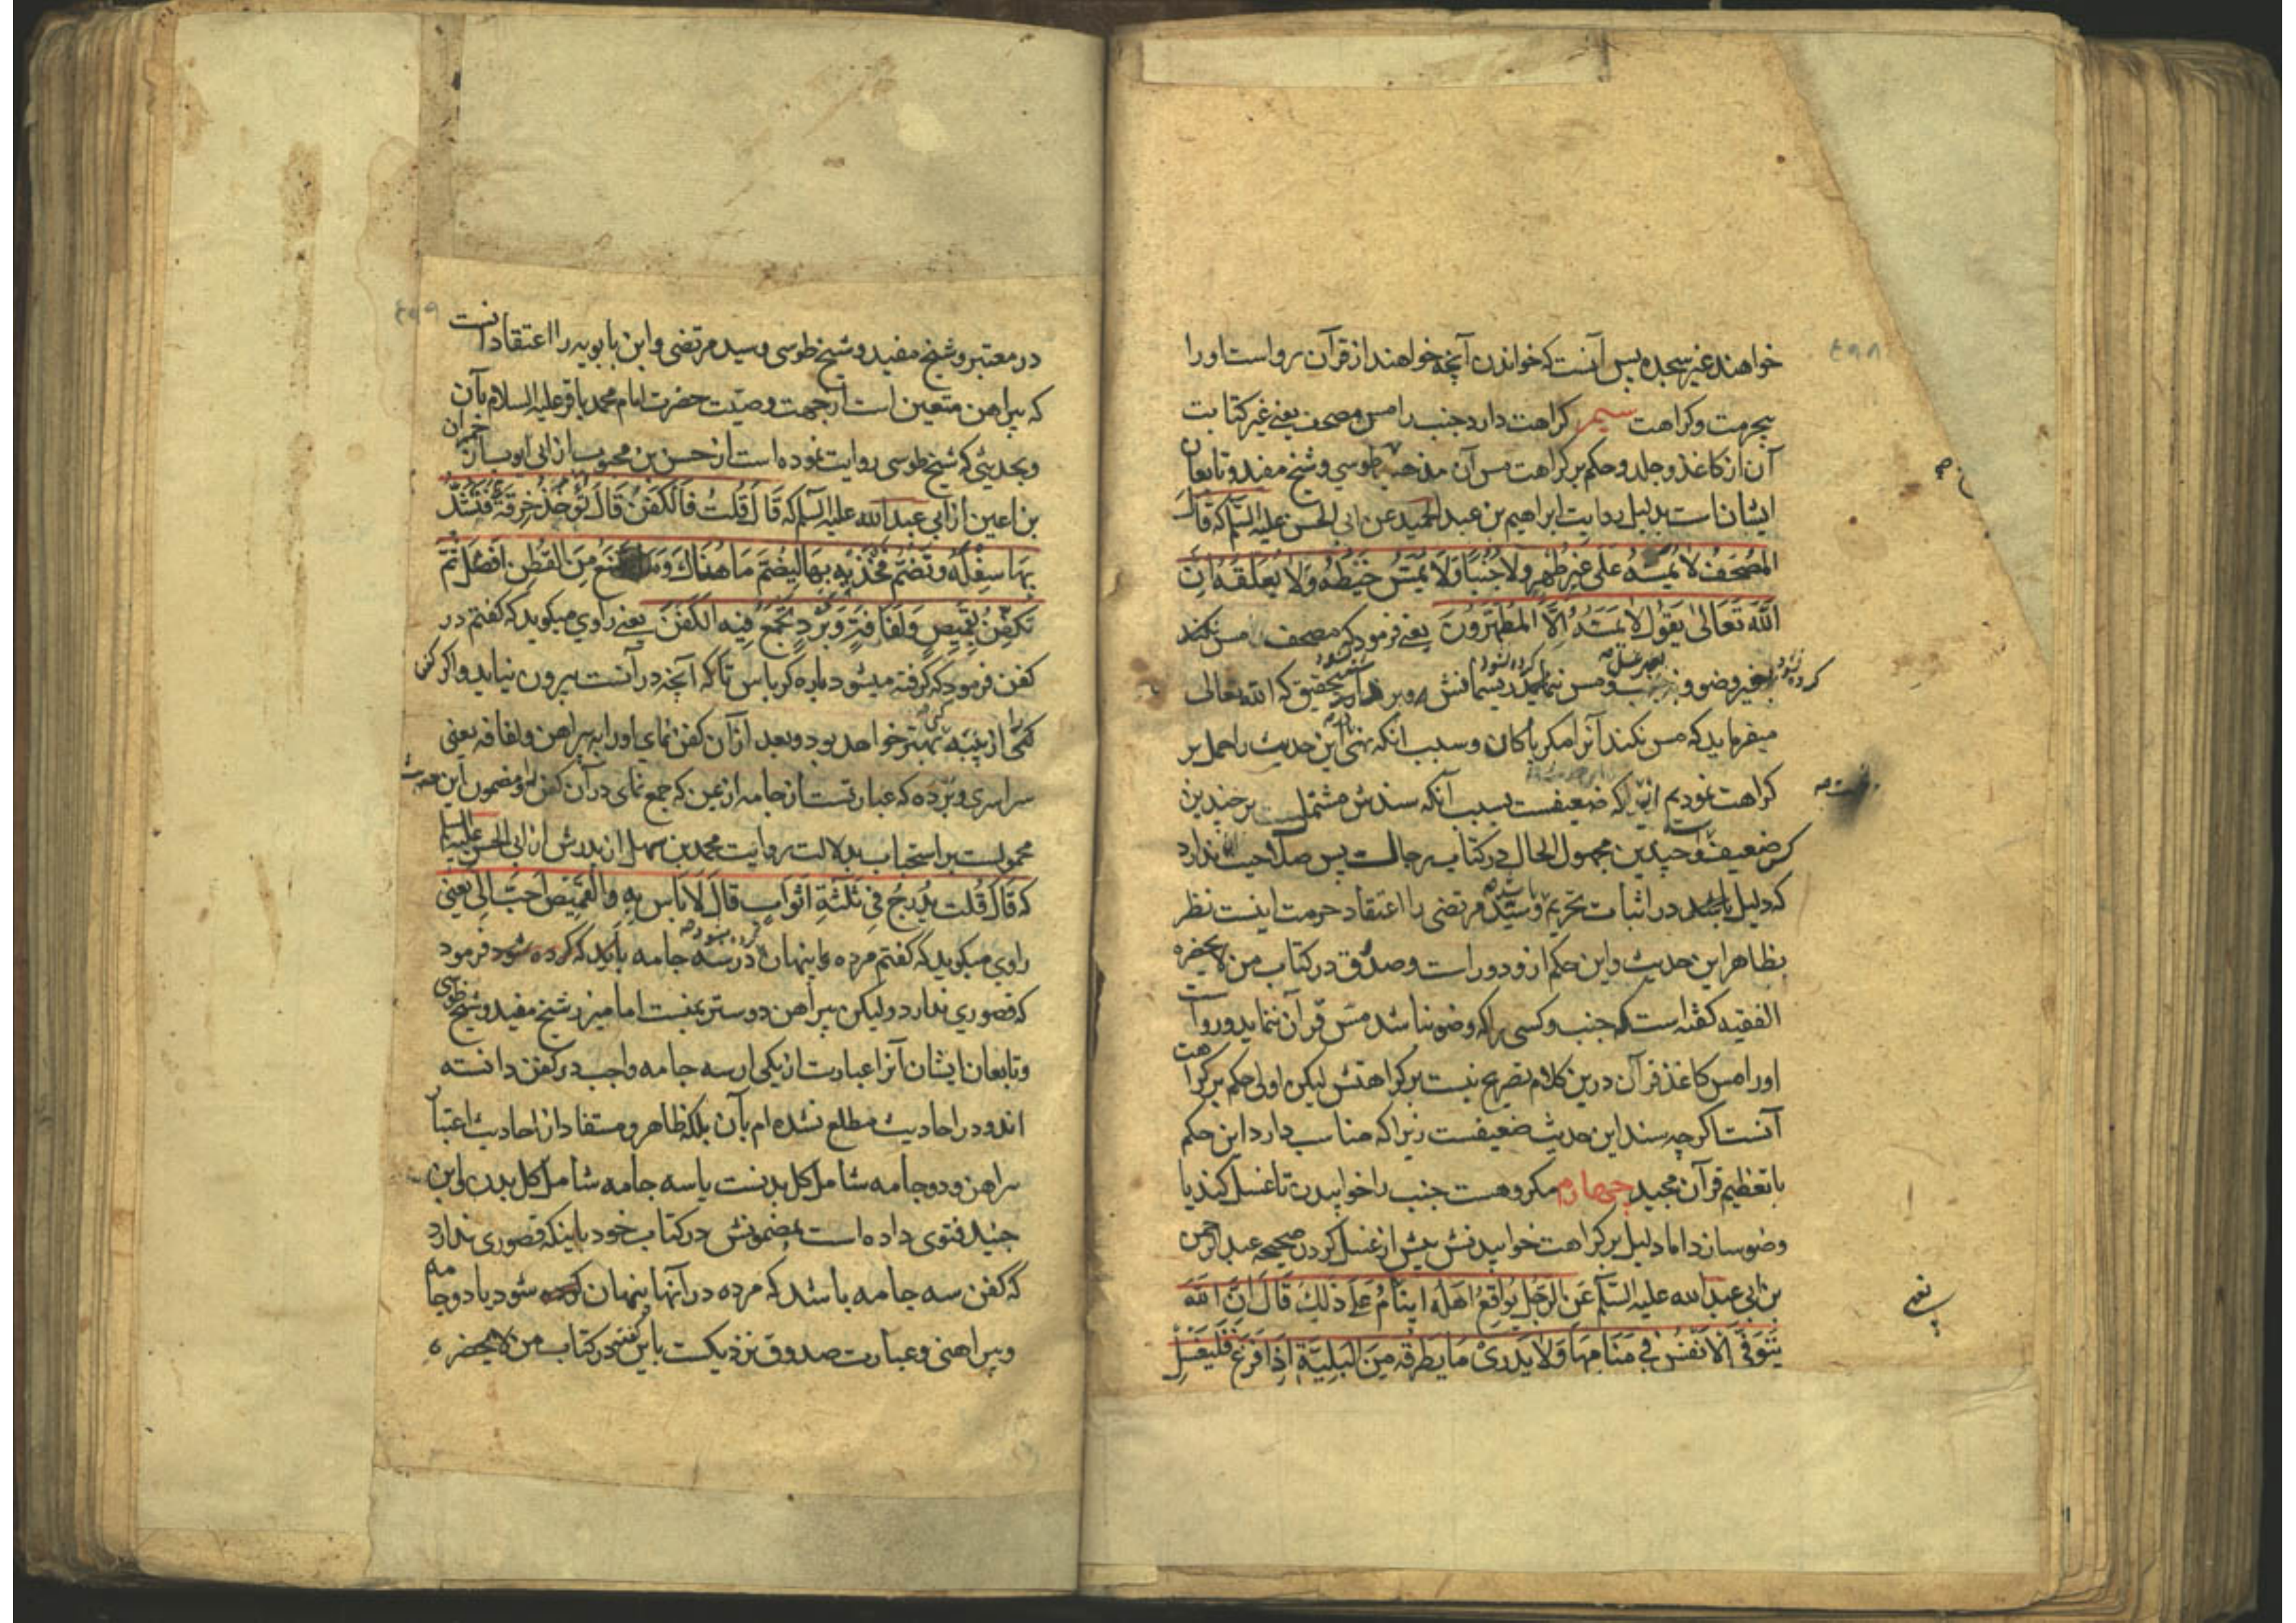 خواهند غیر سجده پس آنست که خواندن آنچه خواهند از قرآن رواست او را
بیحرمت و کراهت سیم کراهت دارد جنب را مس مصحف یعنی غیر کتابت
آن از کاغذ و جلد و حکم بر کراهت مس آن مذهب طوسی و شیخ مفید و تابعان
ایشان است بدلیل روایت ابراهیم بن عبد الحمید عن ابی الحسن علیه السلم که قال
المُصْحَفُ لَا تَمَسَّهُ عَلَی غَیرِ طُهْرٍ وَلَا جُنُبًا وَلَا تَمَسَّ خَیْطَهُ وَلَا تُعَلِّقْهُ اِنَّ
اللّٰهَ تَعَالٰی یَقُولُ لَا یَمَسُّهُ اِلَّا المُطَهَّرُونَ یعنی فرمود که مصحف مس نکند
بغیر وضو و مس ریسمانش بتحقیق که الله تعالی
میفرماید که مس نکند آنرا مگر پاکان و سبب آنکه نهی این حدیث را حمل بر
کراهت نمودیم که ضعیفست بسبب آنکه سندش مشتملست بر چندین
کس ضعیف و چندین مجهول الحال در کتاب رجالست پس صلاحیت ندارد
که دلیل باشد در اثبات تحریم و سید مرتضی را اعتقاد حرمت اینست نظر
بظاهر این حدیث و این حکم ازو دور است و صدوق در کتاب من لایحضره
الفقیه گفته است که جنب و کسی را که وضو نباشد مس قرآن ننماید و رواست
او را مس کاغذ قرآن درین کلام تصریح نیست بر کراهتش لیکن اولی حکم بر کراهت
آنست اگر چه سند این حدیث ضعیفست زیرا که مناسب دارد این حکم
با تعظیم قرآن مجید چهارم مکروهست جنب را خوابیدن تا غسل کند یا
وضو سازد اما دلیل بر کراهت خوابیدنش پیش از غسل کردن صحیحه عبد الرحمن
بن ابی عبد الله علیه السلم عَنِ الرَّجُلِ یُوَاقِعُ اَهْلَهُ اَیَنَامُ عَلَی ذٰلِکَ قَالَ اِنَّ اللّٰهَ
یَتَوَفَّی الْاَنْفُسَ فِی مَنَامِهَا وَلَا یَدْرِی مَا یَطْرُقُهُ مِنَ الْبَلِیَّةِ اِذَا فَرَغَ فَلْیَغْتَسِلْ
در معتبر و شیخ مفید و شیخ طوسی و سید مرتضی و ابن بابویه را اعتقاد آنست
که پیراهن متعین است از جهت وصیت حضرت امام محمد باقر علیه السلام بآن
و بحدیثی که شیخ طوسی روایت نموده است از حسن بن محبوب از ابی ایوب از حمران
بن اعین از ابی عبد الله علیه السلم که قَالَ قُلْتُ فَالْکَفَنُ قَالَ تُؤْخَذُ خِرْقَةٌ فَتُشَدُّ
بِهَا سِفْلُهُ وَتُضَمُّ فَخِذَیْهِ بِهَا لِیُضَمَّ مَا هُنَاکَ وَمَا یُصْنَعُ مِنَ القُطْنِ اَفْضَلُ ثُمَّ
تُکَفَّنُ بِقَمِیصٍ وَلِفَافَةٍ وَبُرْدٍ تُجْمَعُ فِیهِ الْکَفَنُ یعنی راوی میگوید که گفتم در
کفن فرمود که گرفته میشود پاره کرباس تا که آنچه در آنست بیرون نیاید و اگر کس
کمی از پنبه بهتر خواهد بود و بعد از آن کفن نمای او را به پیراهن و لفافه یعنی
سراسری و برده که عبارتست از جامه از یمن که جمع نمای در آن کفن او مضمون این حدیث
محمولست بر استحباب بدلالت روایت محمد بن سهل از پدرش از ابی الحسن علیه السلم
که قَالَ قُلْتُ یُدْرَجُ فِی ثَلٰثَةِ اَثْوَابٍ قَالَ لَا بَأسَ بِهِ وَالْقَمِیصُ اَحَبُّ اِلَیَّ یعنی
راوی میگوید که گفتم مرده پنهان در سه جامه باید که کرده شود فرمود
که قصوری ندارد و لیکن پیراهن دوستر بمنست اما میزر شیخ مفید و شیخ طوسی
و تابعان ایشان آنرا عبارت از یکی از سه جامه واجب در کفن دانسته
اند و در احادیث مطلع نشده ام بآن بلکه ظاهر و مستفاد از احادیث اعتبار
پیراهن و دو جامه شامل کل بدنست یا سه جامه شامل کل بدن ابن
جنید فتوی داده است بمضمونش در کتاب خود باینکه قصوری ندارد
که کفن سه جامه باشد که مرده در آنها پنهان شود یا دو جامه
و پیراهنی و عبارت صدوق نزدیکست باین در کتاب من لایحضره